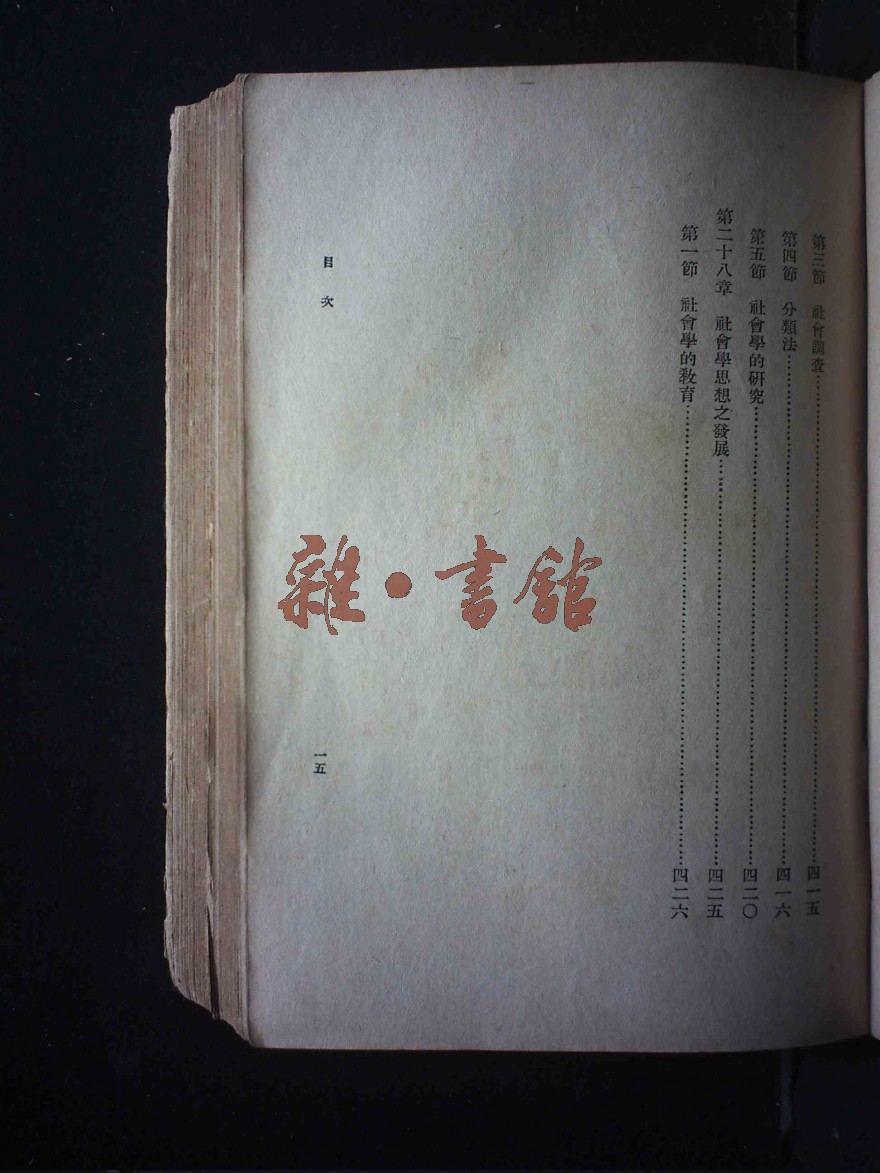 第三節 社會調查…………四一五
第四節 分類法…………四一六
第五節 社會學的研究…………四二〇
第二十八章 社會學思想之發展…………四二五
第一節 社會學的教育…………四二六
目次
一五
雜·書館